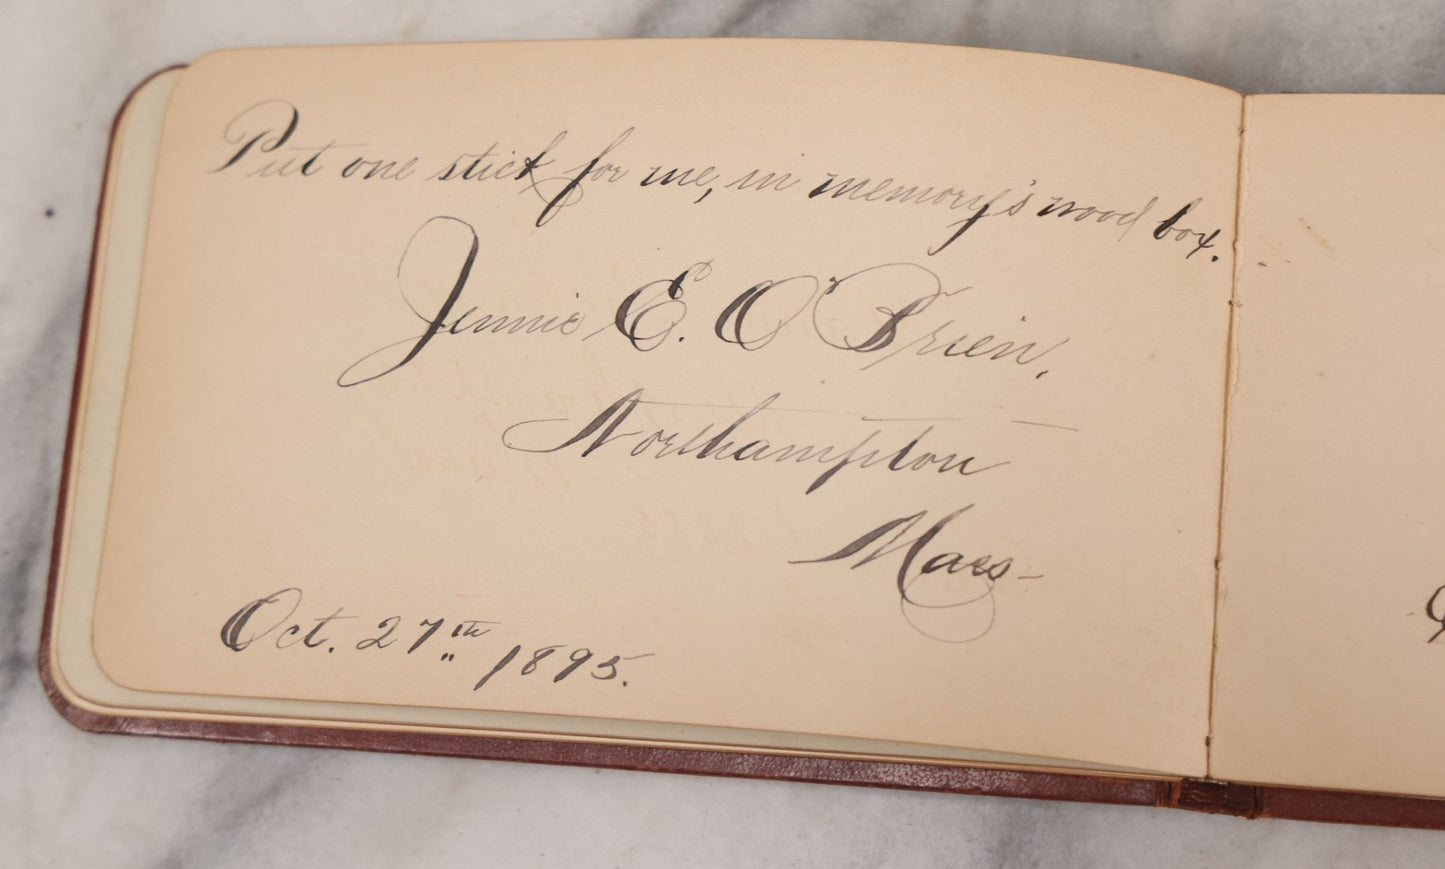 Put one stick for me, in memory's wood box.
Jennie E. O'Brien,
Northampton
Mass-
Oct. 27th 1895.